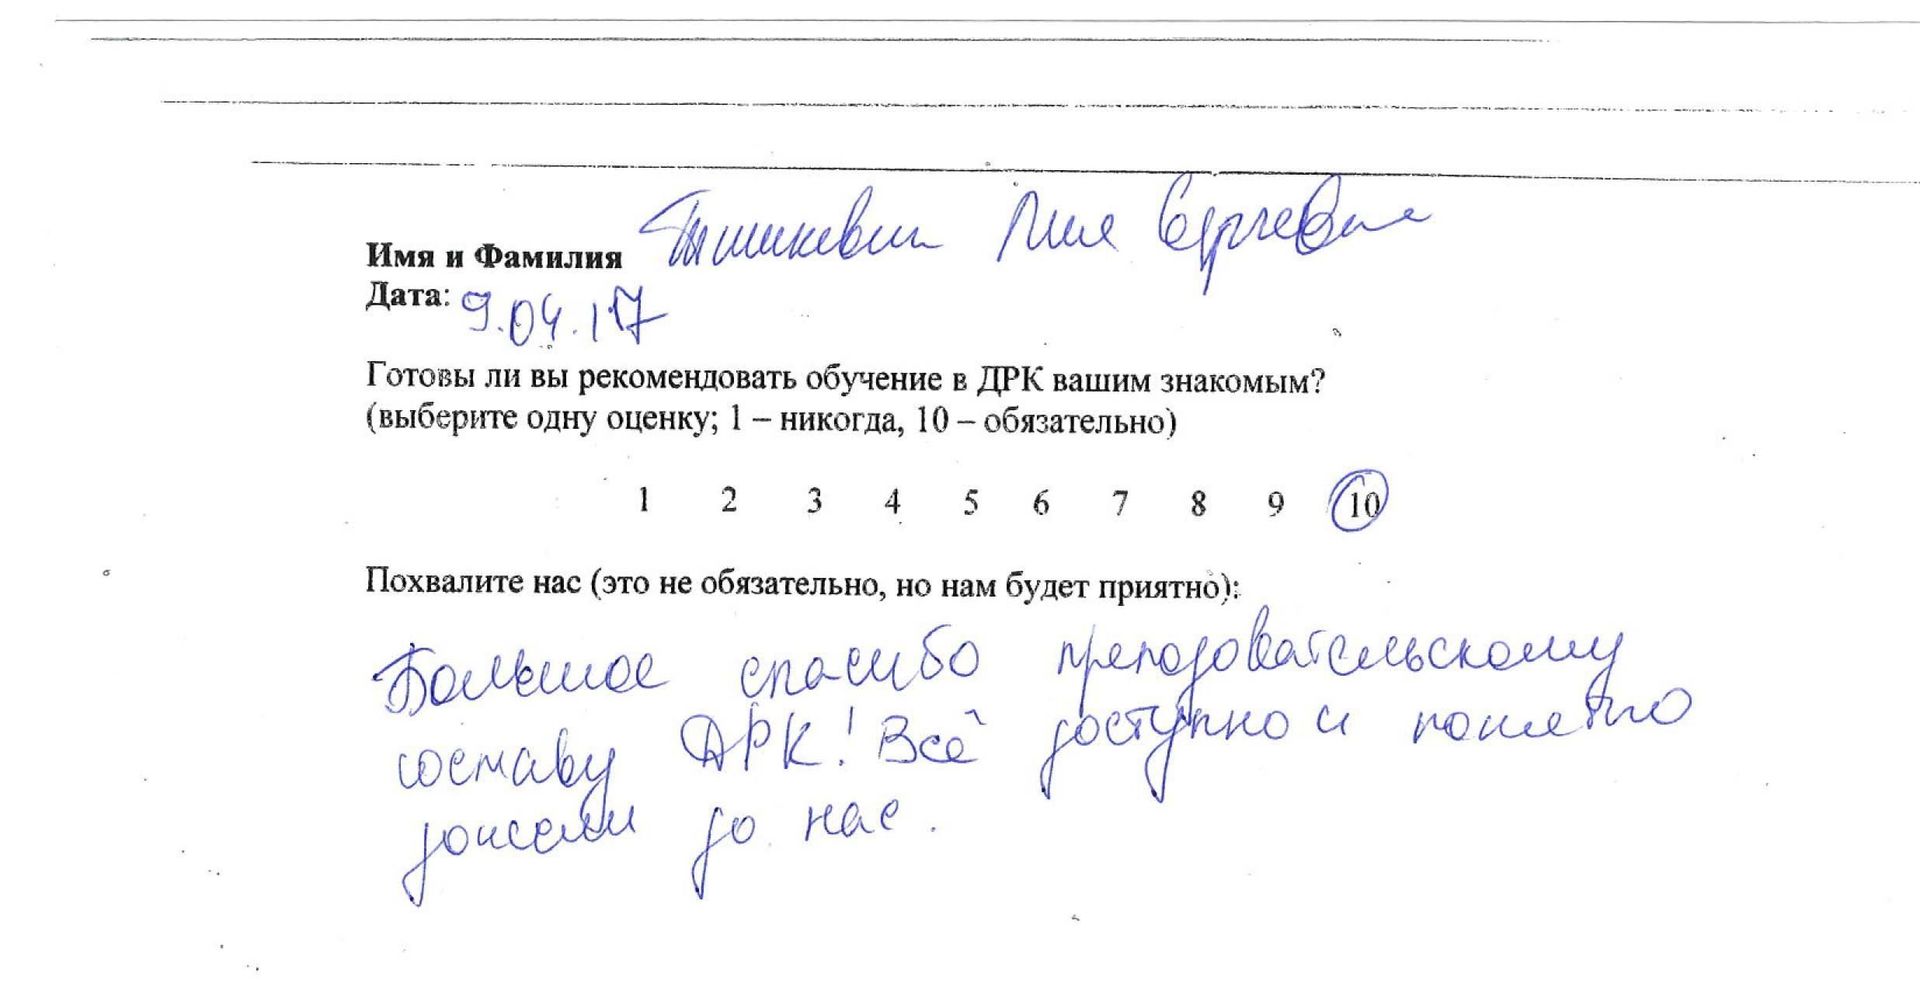 Имя и Фамилия Сергеевна
Дата: 9.04.17
Готовы ли вы рекомендовать обучение в ДРК вашим знакомым?
(выберите одну оценку; 1 – никогда, 10 – обязательно)
1 2 3 4 5 6 7 8 9 10
Похвалите нас (это не обязательно, но нам будет приятно):
Большое спасибо преподовательскому
составу ДРК! Всё доступно и понятно
донесли до нас.